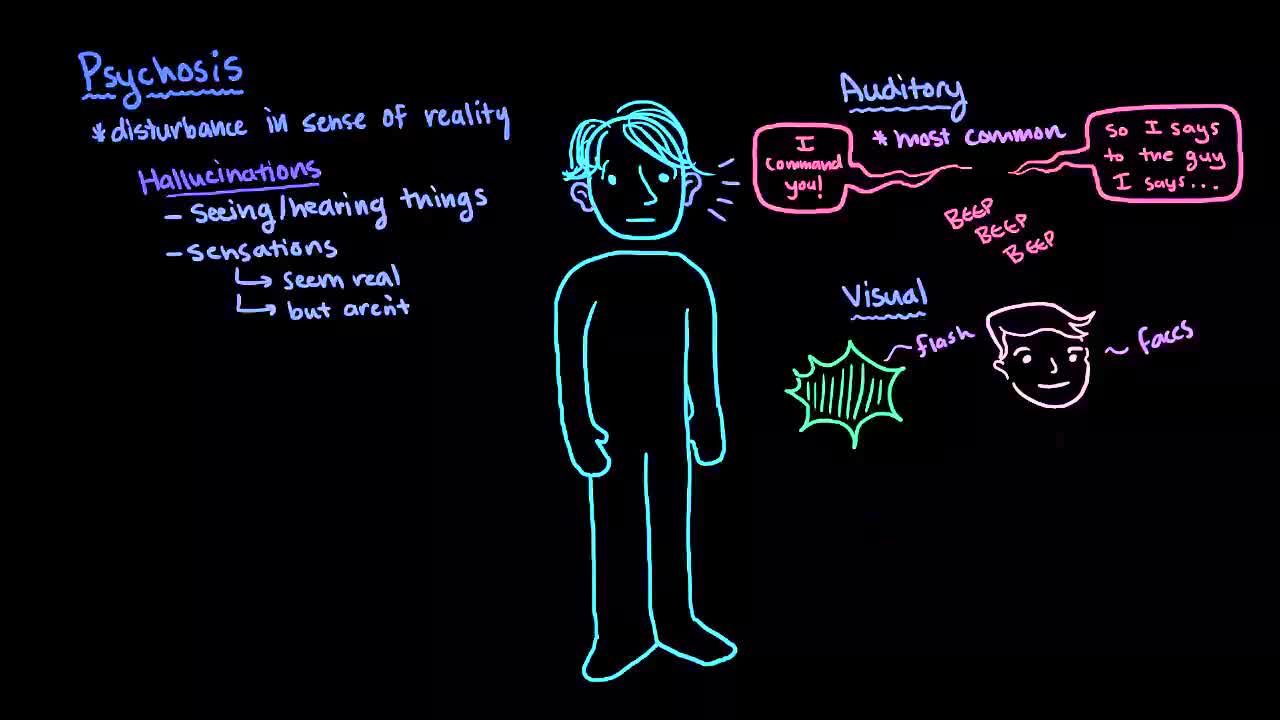 Psychosis
*disturbance in sense of reality
Hallucinations
- seeing/hearing things
- sensations
↳ seem real
↳ but aren't
Auditory
* most common
I
command
you!
so I says
to the guy
I says...
BEEP
BEEP
BEEP
Visual
~ flash
~ faces